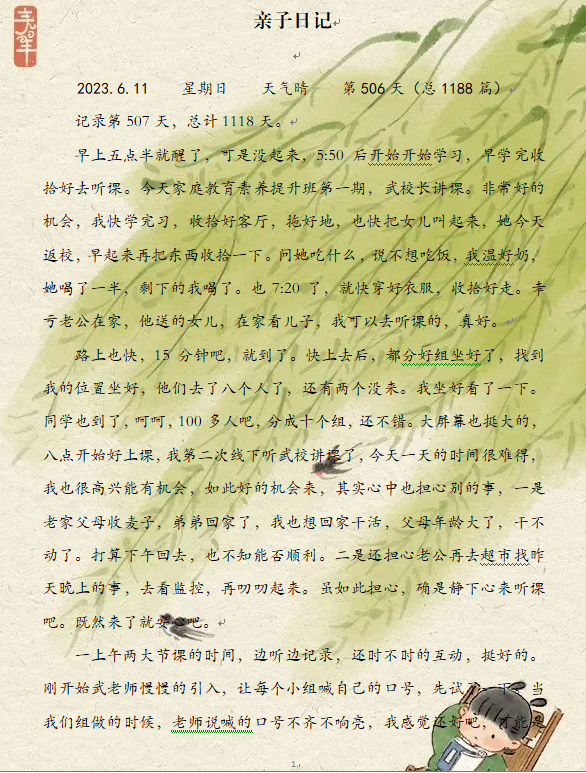 亲子日记
2023.6.11 星期日 天气晴 第 506 天（总 1188 篇）
记录第 507 天，总计 1118 天。
早上五点半就醒了，可是没起来，5:50 后开始开始学习，早学完收
拾好去听课。今天家庭教育素养提升班第一期，武校长讲课。非常好的
机会，我快学完习，收拾好客厅，拖好地，也快把女儿叫起来，她今天
返校，早起来再把东西收拾一下。问她吃什么，说不想吃饭，我温好奶，
她喝了一半，剩下的我喝了。也 7:20 了，就快穿好衣服，收拾好走。幸
亏老公在家，他送的女儿，在家看儿子，我可以去听课的，真好。
路上也快，15 分钟吧，就到了。快上去后，都分好组坐好了，找到
我的位置坐好，他们去了八个人了，还有两个没来。我坐好看了一下。
同学也到了，呵呵，100 多人吧，分成十个组，还不错。大屏幕也挺大的，
八点开始好上课，我第二次线下听武校讲课了，今天一天的时间很难得，
我也很高兴能有机会，如此好的机会来，其实心中也担心别的事，一是
老家父母收麦子，弟弟回家了，我也想回家干活，父母年龄大了，干不
动了。打算下午回去，也不知能否顺利。二是还担心老公再去超市找昨
天晚上的事，去看监控，再叨叨起来。虽如此担心，确是静下心来听课
吧。既然来了就安心吧。
一上午两大节课的时间，边听边记录，还时不时的互动，挺好的。
刚开始武老师慢慢的引入，让每个小组喊自己的口号，先试了一下，当
我们组做的时候，老师说喊的口号不齐不响亮，我感觉还好吧，可能是
1